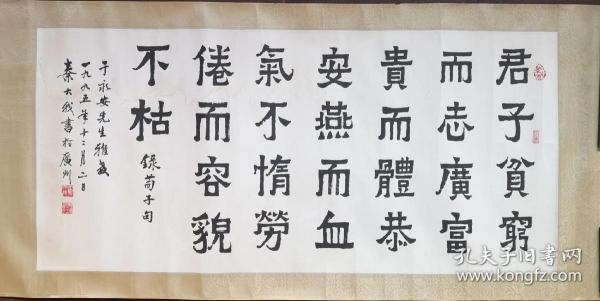 君子貧窮
而志廣富
貴而體恭
安燕而血
氣不惰勞
倦而容貌
不枯
錄荀子句
于永安先生雅教
一九九五年十二月二日
秦大我書於廣州
孔夫子旧书网
www.kongfz.com